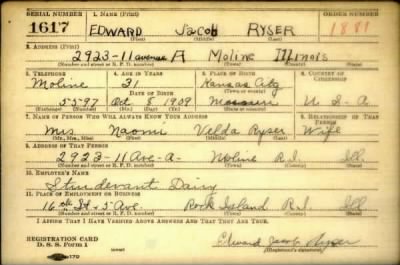 SERIAL NUMBER 1. NAME (Print) ORDER NUMBER
1617 EDWARD JACOB RYSER 1881
(First) (Middle) (Last)
2. ADDRESS (Print)
2923-11 avenue A Moline Illinois
(Number and street or R. F. D. number) (Town) (County) (State)
3. TELEPHONE 4. AGE IN YEARS 5. PLACE OF BIRTH 6. COUNTRY OF CITIZENSHIP
Moline 31 Kansas City
DATE OF BIRTH (Town or county)
5-5-97 Oct 8 1909 Missouri U.S.A
(Exchange) (Number) (Mo.) (Day) (Yr.) (State or country)
7. NAME OF PERSON WHO WILL ALWAYS KNOW YOUR ADDRESS 8. RELATIONSHIP OF THAT PERSON
Mrs Naomi Velda Ryser Wife
(Mr., Mrs., Miss) (First) (Middle) (Last)
9. ADDRESS OF THAT PERSON
2923-11 Ave-A- Moline R.I. Ill.
(Number and street or R. F. D. number) (Town) (County) (State)
10. EMPLOYER'S NAME
Sturdevant Dairy
11. PLACE OF EMPLOYMENT OR BUSINESS
16th St + 5 Ave. Rock Island R.I. Ill
(Number and street or R. F. D. number) (Town) (County) (State)
I AFFIRM THAT I HAVE VERIFIED ABOVE ANSWERS AND THAT THEY ARE TRUE.
REGISTRATION CARD
D. S. S. Form 1 Edward Jacob Ryser
(Registrant's signature)